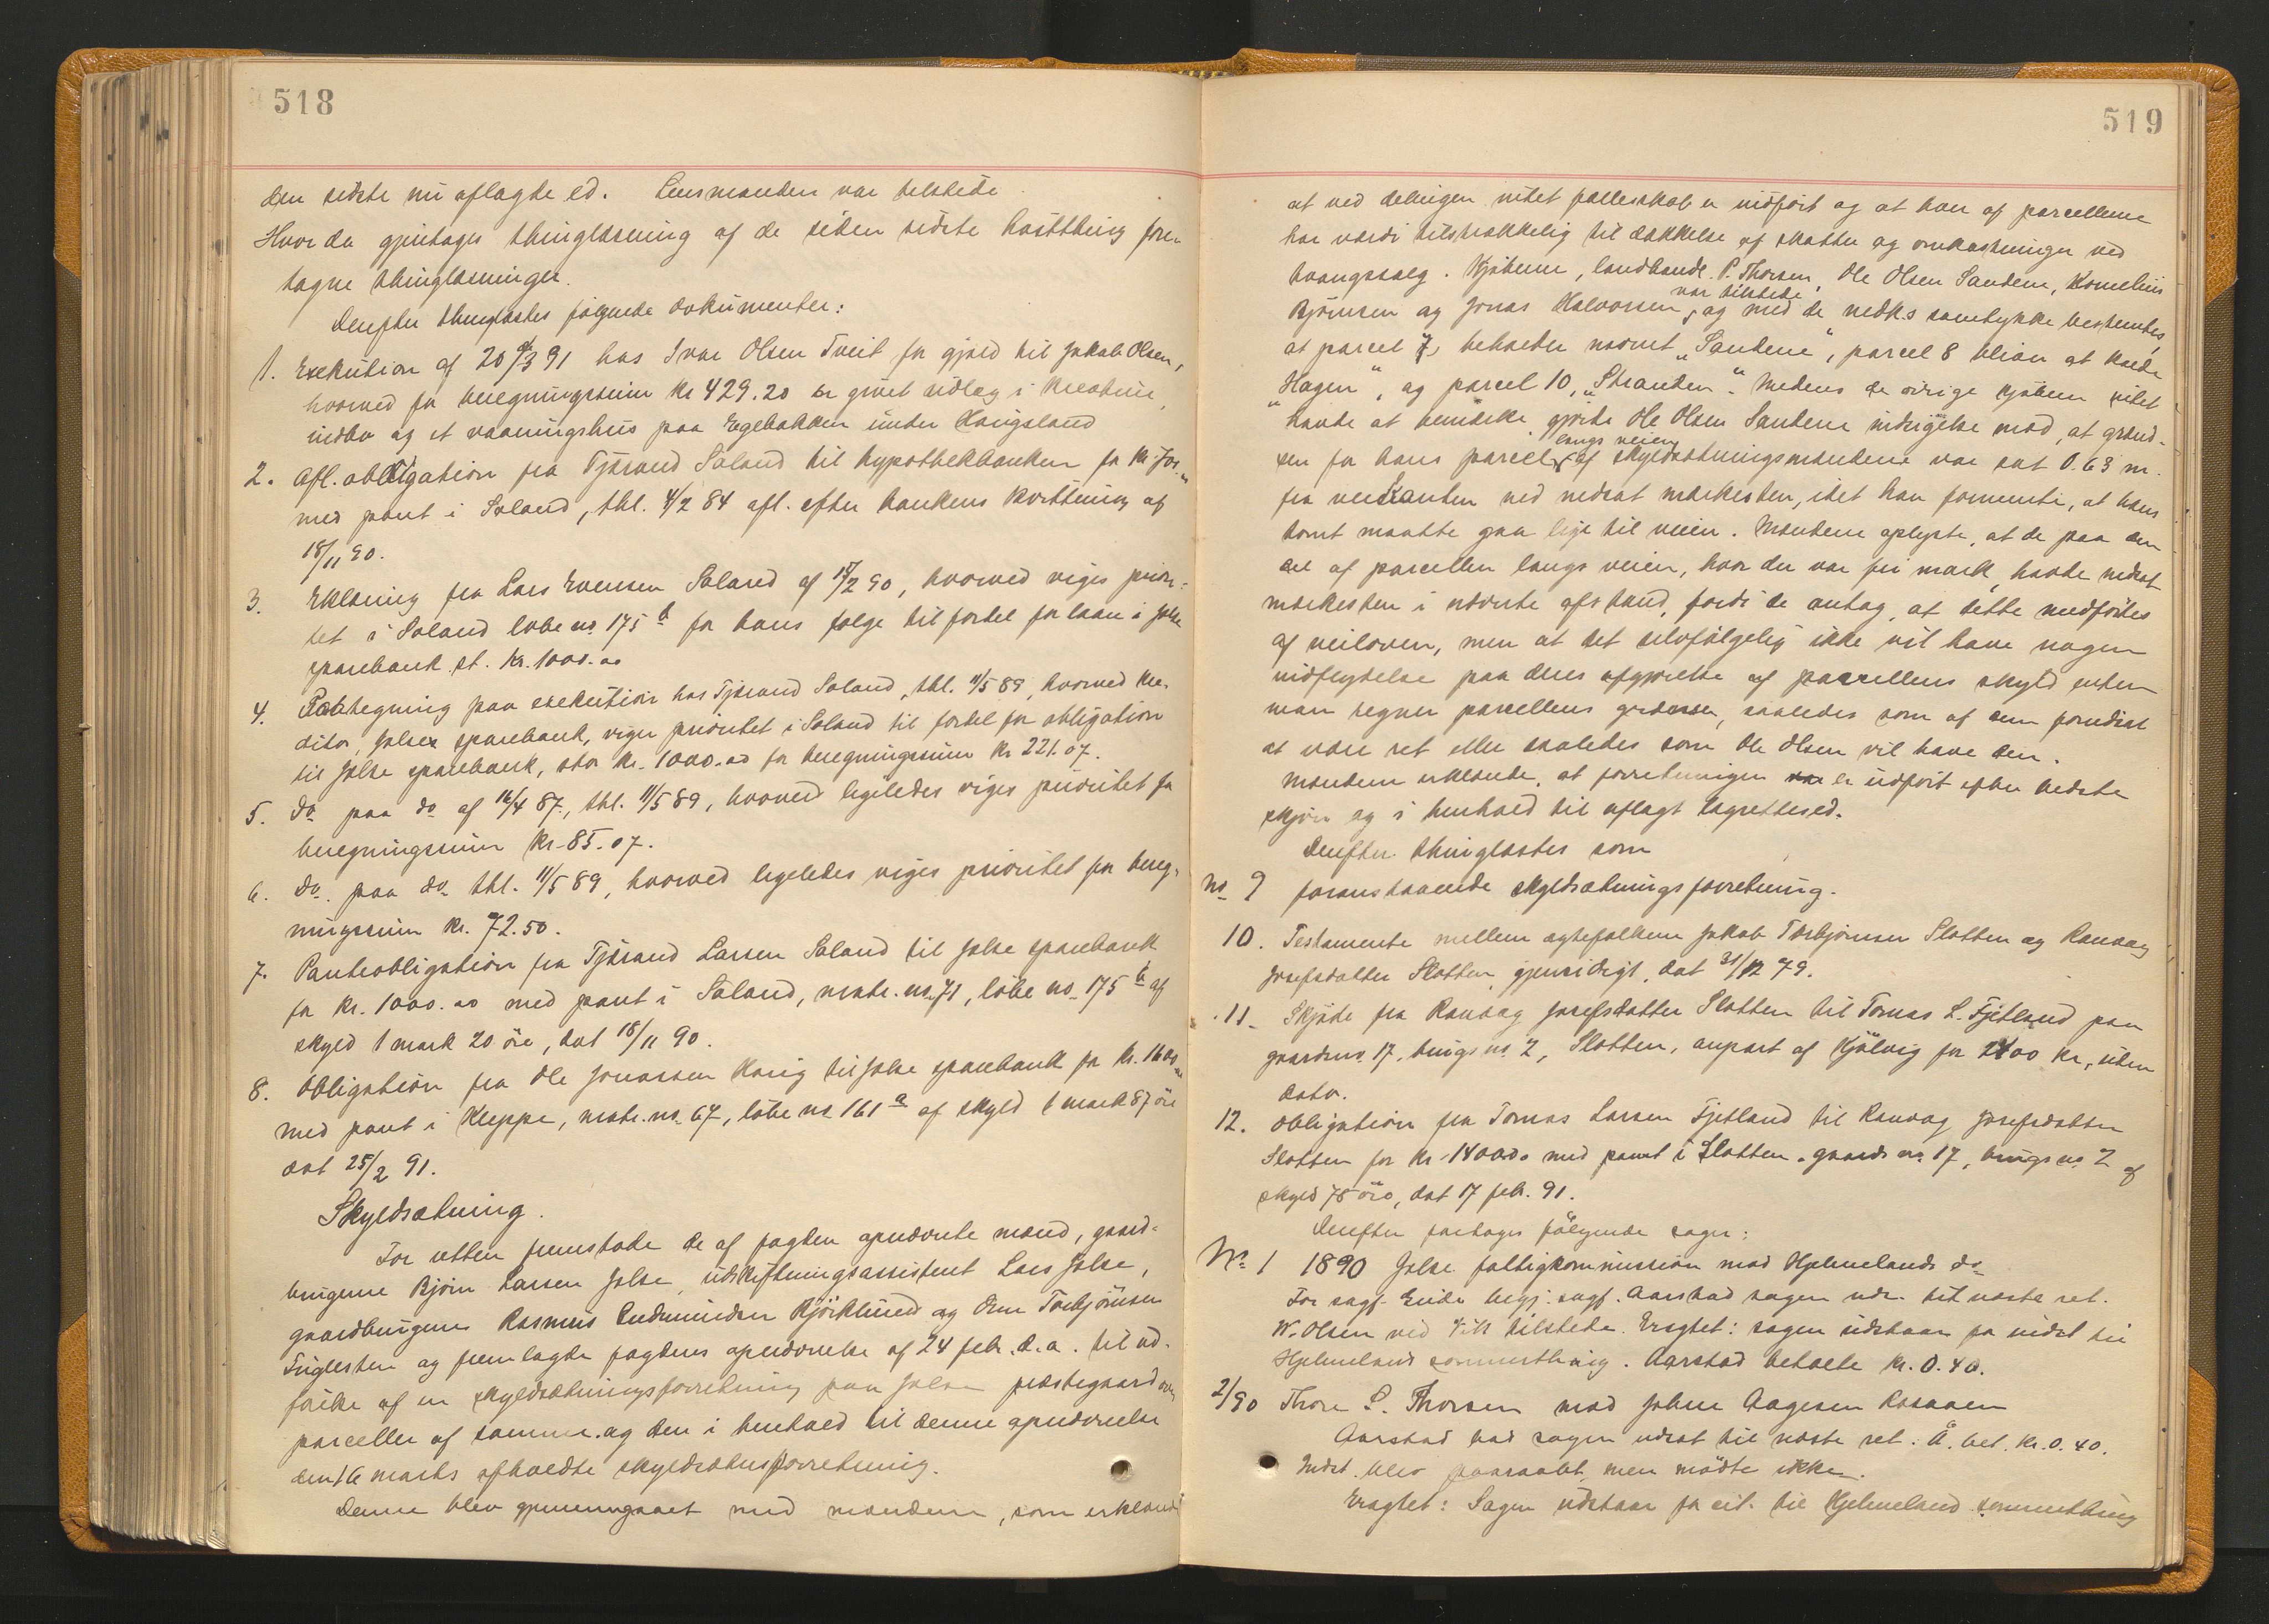 518
den sidste nu aflagde ed. Lensmanden var tilstede.
Hvorda gjentages thinglæsning af de siden sidste høstthing fore-
tagne thinglæsninger.
Derefter thinglæstes følgende dokumenter:
1. Exekution af 20/3 91 hos Ivar Olsen Tveit for gjæld til Jakob Olsen,
hvorved for beregningssum kr 429.20 er givet udlæg i kreature,
indbo og et vaaningshus paa Egebakken under Haugsland
2. Afl. obligation fra Tjøraand Søland til hypothekbanken for kr.
med pant i Søland, thl. 4/2 84 afl. efter bankens kvittering af
18/11 90.
3. Erklæring fra Lars Evensen Søland af 17/2 90, hvorved viges priori-
tet i Søland løbe no. 175 b for hans folge til fordel for laan i Jelse
sparebank st. kr. 1000.00
4. Paategning paa exekution hos Tjøraand Søland, thl. 11/5 89, hvorved kre-
ditor, Jelse sparebank, viger prioritet i Søland til fordel for obligation
til Jelse sparebank, stor kr. 1000.00 for beregningssum kr 221.07.
5. do paa do af 16/4 87, thl. 11/5 89, hvorved ligeledes viges prioritet for
beregningssum kr. 85.07.
6. do. paa do thl. 11/5 89, hvorved ligeledes viges prioritet for bereg-
ningssum kr. 72.50.
7. Panteobligation fra Tjøraand Larsen Søland til Jelse sparebank
for kr. 1000.00 med pant i Søland, matr. no. 71, løbe no. 175 b af
skyld 1 mark 20 øre, dat 18/11 90.
8. Obligation fra Ole Jonassen til Jelse sparebank for kr. 1600
med pant i Kleppe, matr. no. 67, løbe no 161 a af skyld 1 mark 87 øre
dat 25/2 91.
Skyldsætning.
For retten fremstode de af fogden opnævnte mænd, gaard-
brugerne Bjørn Larsen Jelse, udskiftningsassistent Lars Jelse,
gaardbrugerne Rasmus Gudmundsen Bjørklund og Torbjørnsen
Fuglesten og fremlagde fogdens opnævnelse af 24 febr. d.a. til ud-
førelse af en skyldsætningsforretning paa Jelse præstegaard over
parceller af samme og den i henhold til denne opnævnelse
den 16 marts afholdte skyldsætnsforretning.
Denne blev gjennemgaaet med mændene, som erklærede
519
at ved delingen intet fælleskab er indført og at hver af parcellerne
har værdi tilstrækkelig til dækkelse af skatter og omkostninger ved
tvangssalg. Kjøberne, landhandl. P. Thorsen, Ole Olsen Sandene, Kornelius
var tilstede
Bjørnsen og Jonas Halvorsen, og med de nedks samtykke bestemtes,
at parcel 7, beholder navnet „Sandene“, parcel 8 bliver at kalde
„Hagen“, og parcel 10, „Stranden“. Medens de øvrige kjøbere intet
havde at bemærke gjorde Ole Olsen Sandene indsigelse mod, at grænd-
langs veien
sen for hans parcel af skyldsætningsmændene var sat 0.63 m.
fra veikanten ved nedsat markesten, idet han formente, at hans
tomt maatte gaa lige til veien. Mændene oplyste, at de paa den
del af parcellen langs veien, hvor der var fri mark, havde nedsat
markesten i nævnte afstand, fordi de antog, at dette medførtes
af veiloven, men at det selvfølgelig ikke vil have nogen
indflydelse paa deres afgjørelse af parcellens skyld enten
man regner parcellens grænser, saaledes som af dem forudsat
at være ret eller saaledes som Ole Olsen vil have den.
Mændene erklærede, at forretningen er udført efter bedste
skjøn og i henhold til aflagt lagrettesed.
Derefter thinglæstes som
no 9 foranstaaende skyldsætningsforretning.
10. Testamente mellem ægtefolkene Jakob Torbjørnsen Slotten og Ranvag
Josefsdatter Slotten, gjensidigt, dat 31/12 79.
11. Skjøde fra Ranvag Josefsdatter Slotten til Tomas L. Fjetland paa
gaardsno. 17, brugs no. 2, Slotten, anpart af Kjølvig for 2400 kr, uden
dato.
12. Obligation fra Tomas Larsen Fjetland til Ranvag Josefsdatter
Slotten for kr. 1400.00 med pant i Slotten, gaards no. 17, brugs no. 2 af
skyld 78 øre, dat 17 febr. 91.
Derefter foretages følgende sager:
No. 1 1890 Jelse fattigkommission mod Hjelmelands do
For sagf. Eide begj. sagf. Aarstad sagen uds. til næste ret.
W. Olsen ved tilstede. Eragtet: sagen udstaar for indst til
Hjelmeland sommerthing. Aarstad betalte kr. 0.40.
2/90 Thore S. Thorsen mod Johne Aagesen Rosaaen
Aarstad bad sagen udsat til næste ret. Å. bet. kr. 0.40.
Indst. blev paaraabt, men mødte ikke.
Eragtet: Sagen udstaar for cit. til Hjelmeland sommerthing